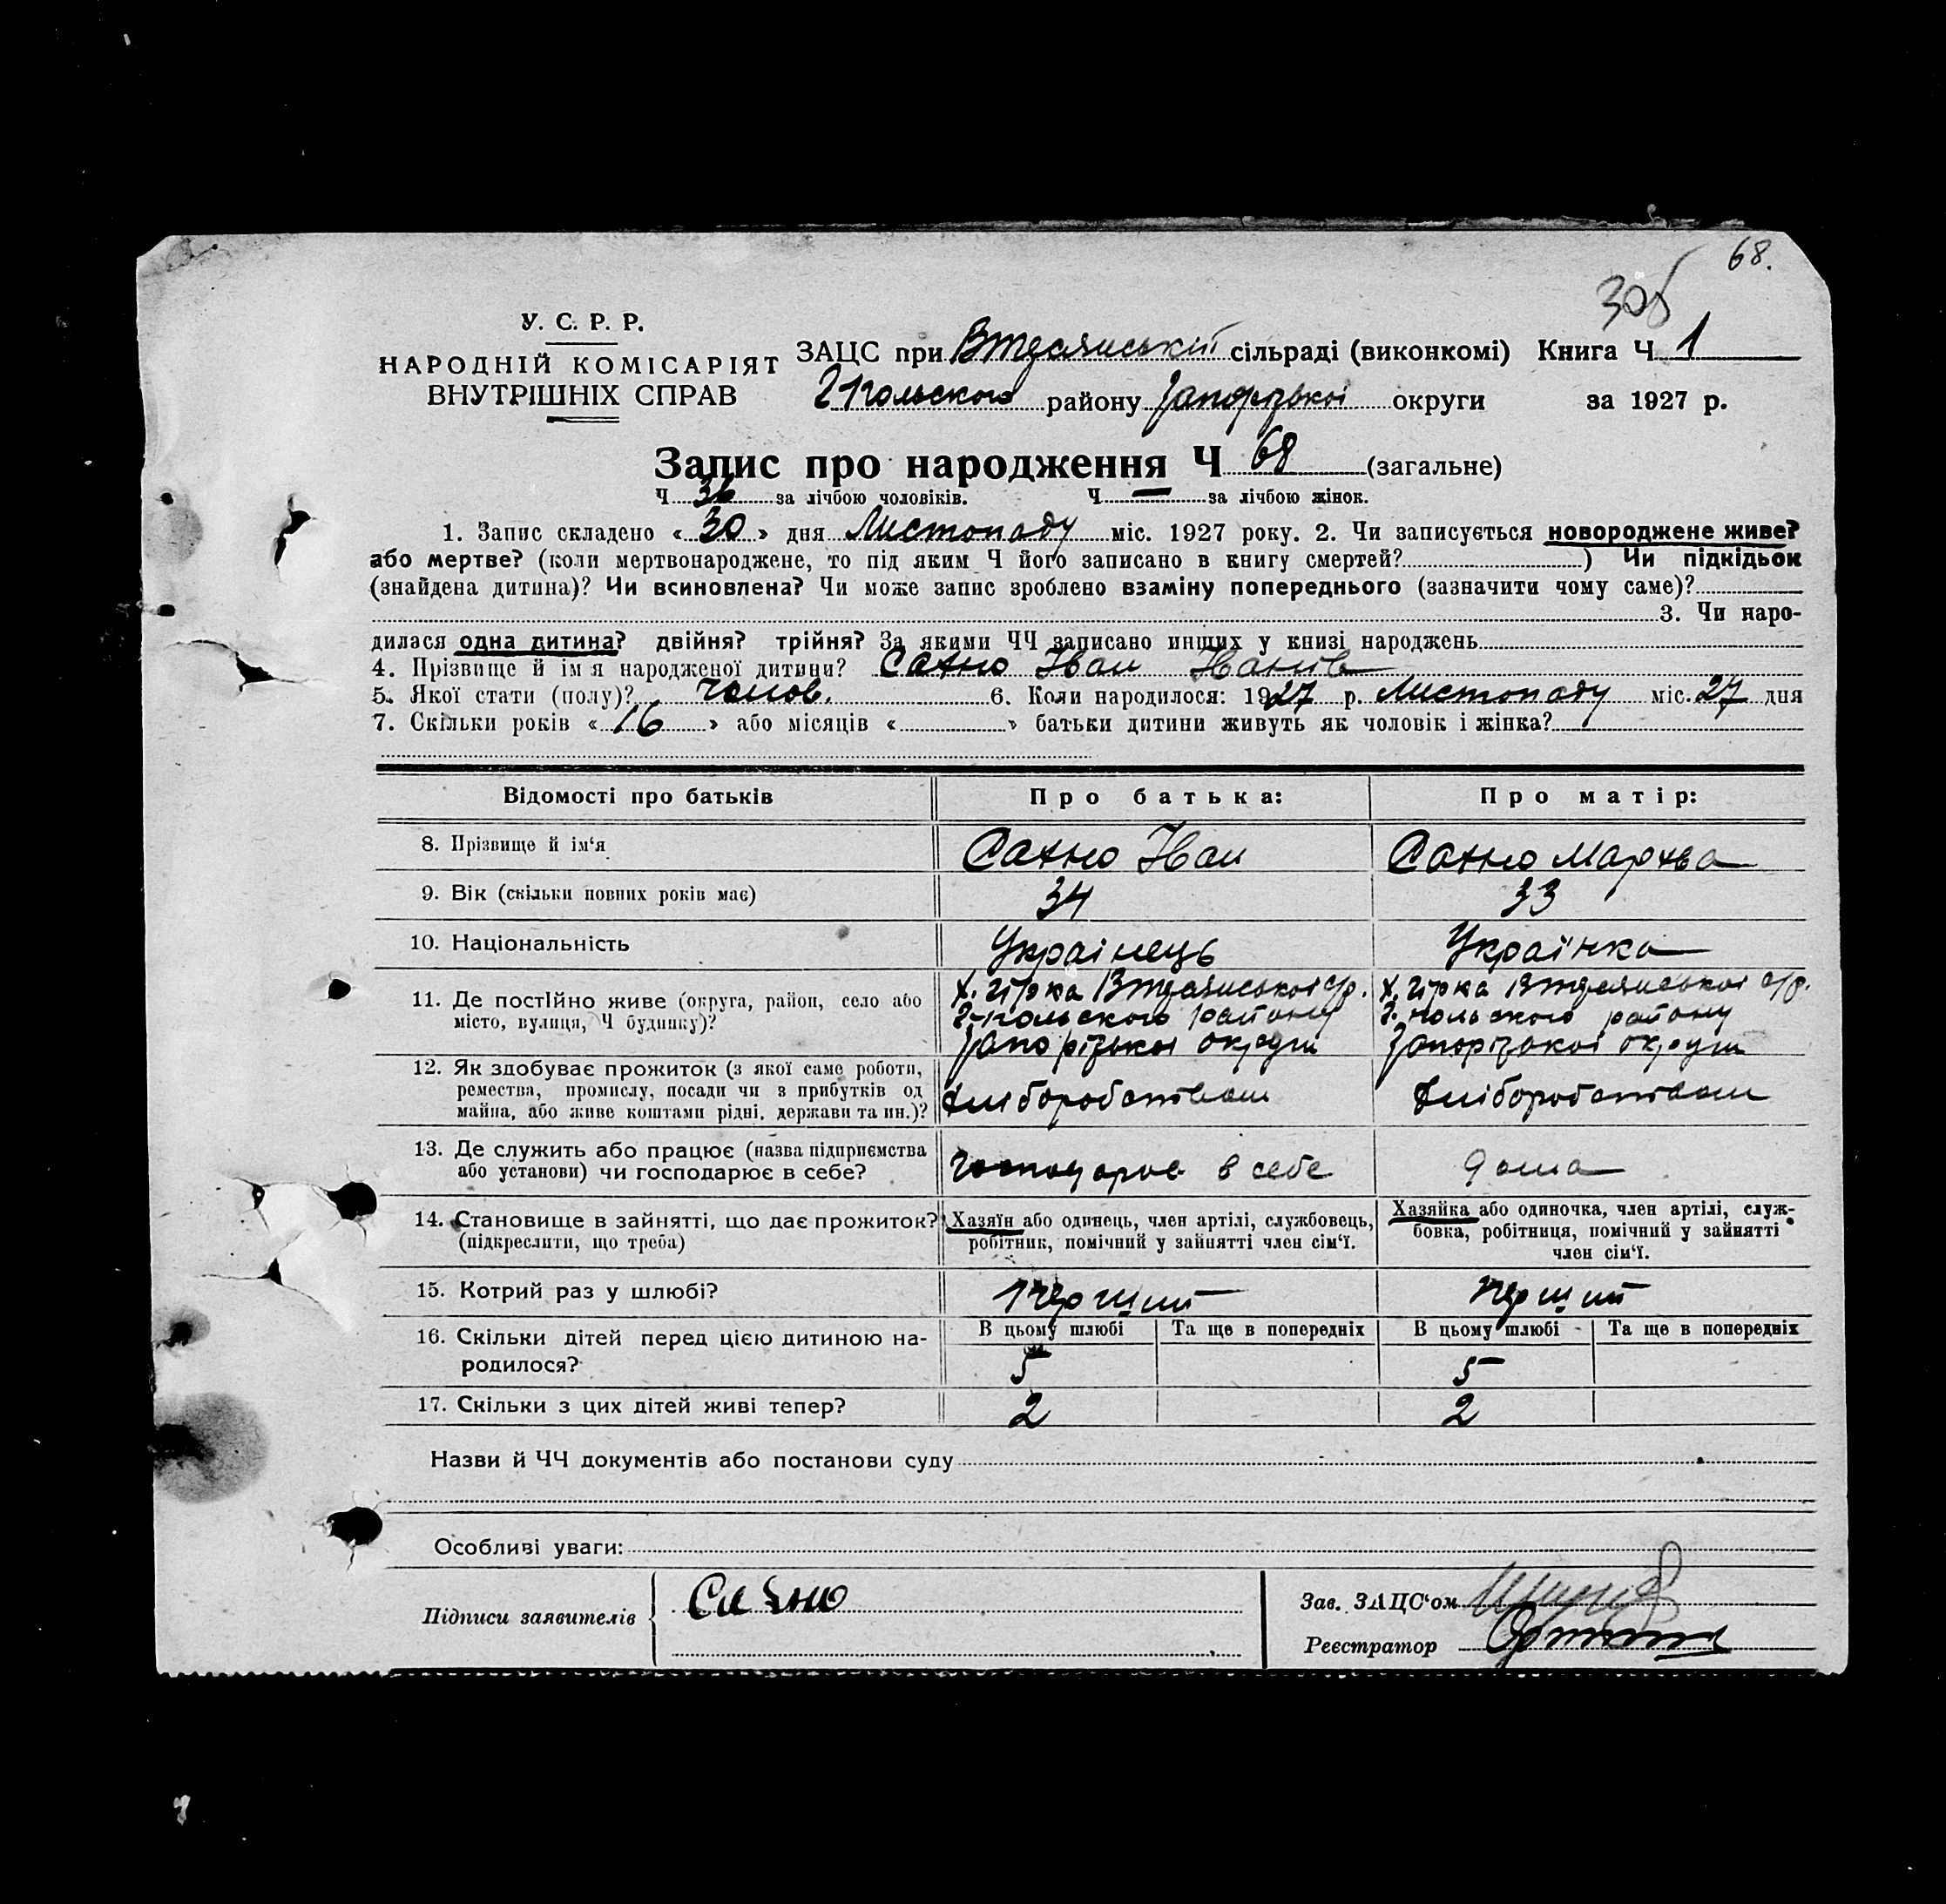 68.
У. С. Р. Р.
НАРОДНІЙ КОМІСАРІЯТ
ВНУТРІШНІХ СПРАВ
ЗАЦС при сільраді (виконкомі) Книга Ч 1
району Запорізької округи за 1927 р.
Запис про народження Ч 68 (загальне)
Ч 36 за лічбою чоловіків. Ч — за лічбою жінок.
1. Запис складено « 30 » дня Листопаду міс. 1927 року. 2. Чи записується новороджене живе?
або мертве? (коли мертвонароджене, то під яким Ч його записано в книгу смертей? ) Чи підкідьок
(знайдена дитина)? Чи всиновлена? Чи може запис зроблено взаміну попереднього (зазначити чому саме)?
3. Чи наро-
дилася одна дитина? двійня? трійня? За якими ЧЧ записано инших у книзі народжень
4. Прізвище й ім'я народженої дитини? Сахно Іван Іванів
5. Якої стати (полу)? чолов. 6. Коли народилося: 1927 р. Листопаду міс. 27 дня
7. Скільки років « 16 » або місяців « » батьки дитини живуть як чоловік і жінка?
Відомості про батьків Про батька: Про матір:
8. Прізвище й ім‘я Сахно Іван Сахно Мархва
9. Вік (скільки повних років має) 34 33
10. Національність Українець Українка
11. Де постійно живе (округа, район, село або
місто, вулиця, Ч будинку)?
Х. Гірка с/р. Х. Гірка с/р.
району району
Запорізької округи Запорізької округи
12. Як здобуває прожиток (з якої саме роботи,
ремества, промислу, посади чи з прибутків од
майна, або живе коштами рідні, держави та ин.)?
хліборобством хліборобством
13. Де служить або працює (назва підприємства
або установи) чи господарює в себе?
господарює в себе дома
14. Становище в зайнятті, що дає прожиток?
(підкреслити, що треба)
Хазяїн або одинець, член артілі, службовець,
робітник, помічний у зайнятті член сім‘ї.
Хазяйка або одиночка, член артілі, служ-
бовка, робітниця, помічний у зайнятті
член сім‘ї.
15. Котрий раз у шлюбі? перший перший
16. Скільки дітей перед цією дитиною на-
родилося?
В цьому шлюбі Та ще в попередніх В цьому шлюбі Та ще в попередніх
5 5
17. Скільки з цих дітей живі тепер? 2 2
Назви й ЧЧ документів або постанови суду
Особливі уваги:
Підписи заявителів Сахно
Зав. ЗАЦС‘ом
Реєстратор